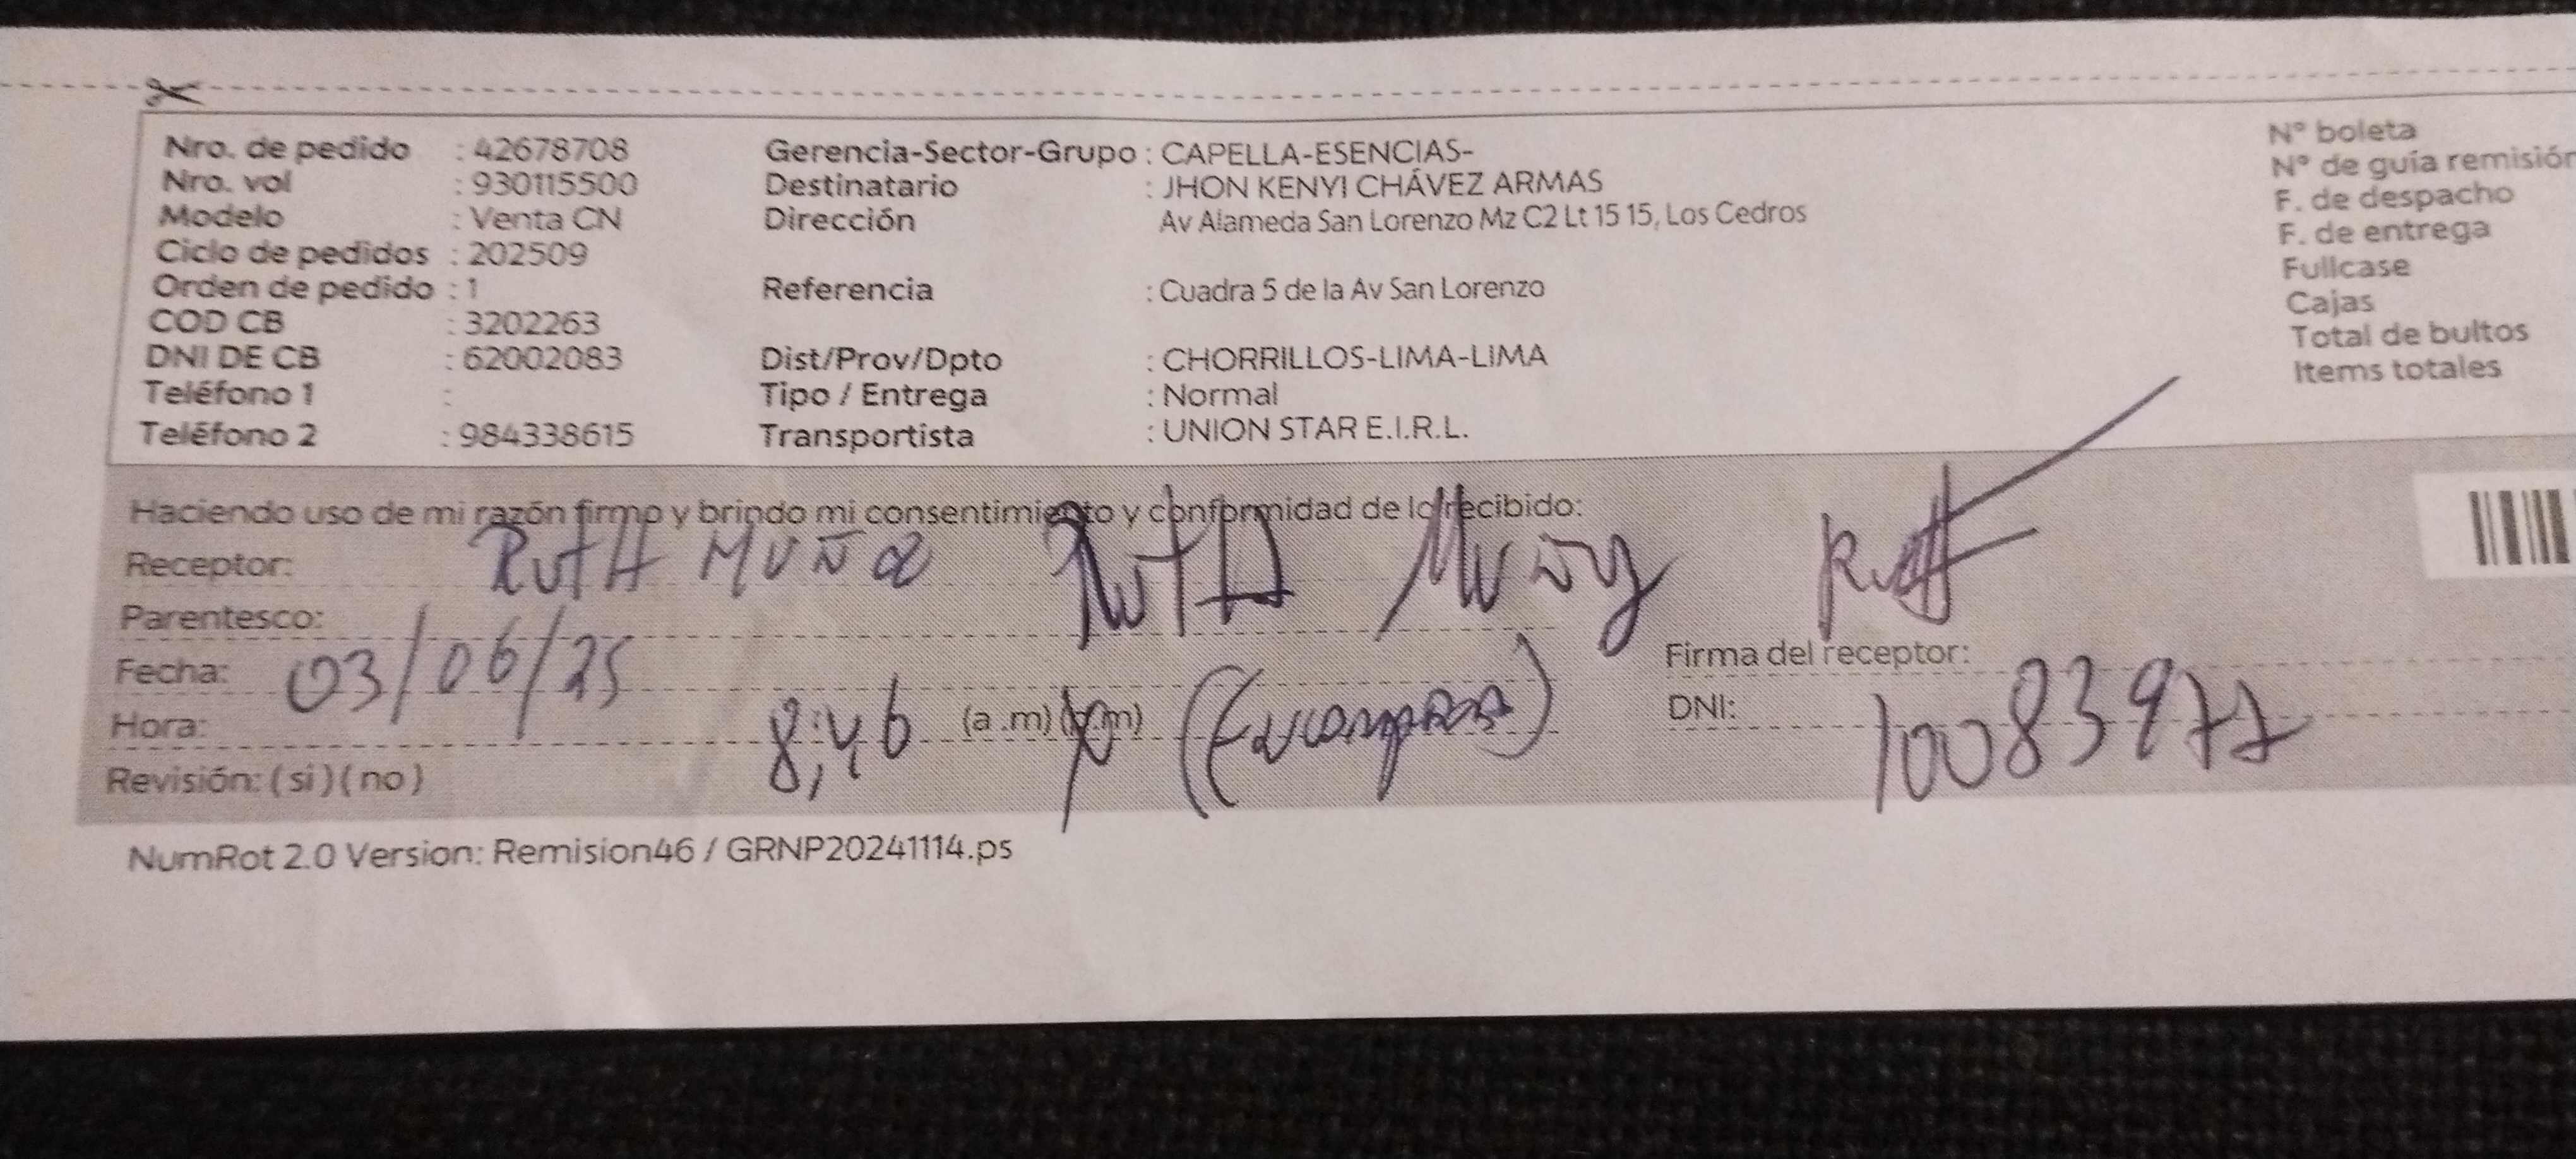 Nro. de pedido : 42678708 Gerencia-Sector-Grupo : CAPELLA-ESENCIAS- N° boleta
Nro. vol : 930115500 Destinatario : JHON KENYI CHÁVEZ ARMAS N° de guía remisión
Modelo : Venta CN Dirección Av Alameda San Lorenzo Mz C2 Lt 15 15, Los Cedros F. de despacho
Ciclo de pedidos : 202509 F. de entrega
Orden de pedido : 1 Referencia : Cuadra 5 de la Av San Lorenzo Fullcase
COD CB : 3202263 Cajas
DNI DE CB : 62002083 Dist/Prov/Dpto : CHORRILLOS-LIMA-LIMA Total de bultos
Teléfono 1 : Tipo / Entrega : Normal Items totales
Teléfono 2 : 984338615 Transportista : UNION STAR E.I.R.L.
Haciendo uso de mi razón firmo y brindo mi consentimiento y conformidad de lo recibido:
Receptor: RUTH MUÑOZ RUTH Muñoz
Parentesco:
Fecha: 03/06/25 Firma del receptor:
Hora: 8:46 (a .m) (p.m) DNI: 10083977
Revisión: ( si ) ( no )
NumRot 2.0 Version: Remision46 / GRNP20241114.ps